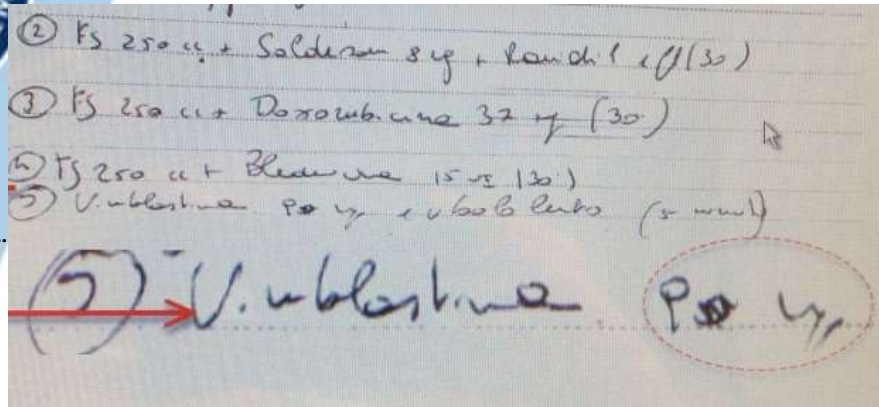 ② FS 250 cc + Soldesam 8 mg + Ranidil 1 fl (30')
③ FS 250 cc + Doxorubicina 37 mg (30')
④ FS 250 cc + 15 (30')
⑤ Vinblastina mg ev bolo lento (5 minuti)
⑤ Vinblastina mg